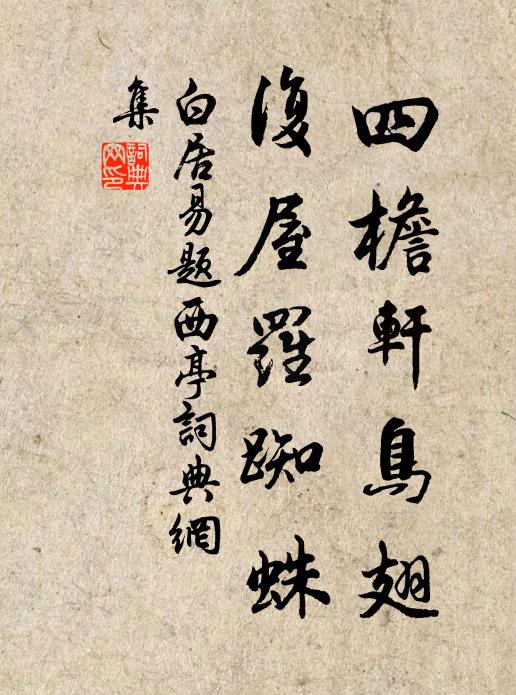 四檐軒鳥翅
復屋羅蜘蛛
白居易題西亭詞典網
集
詞典
网印